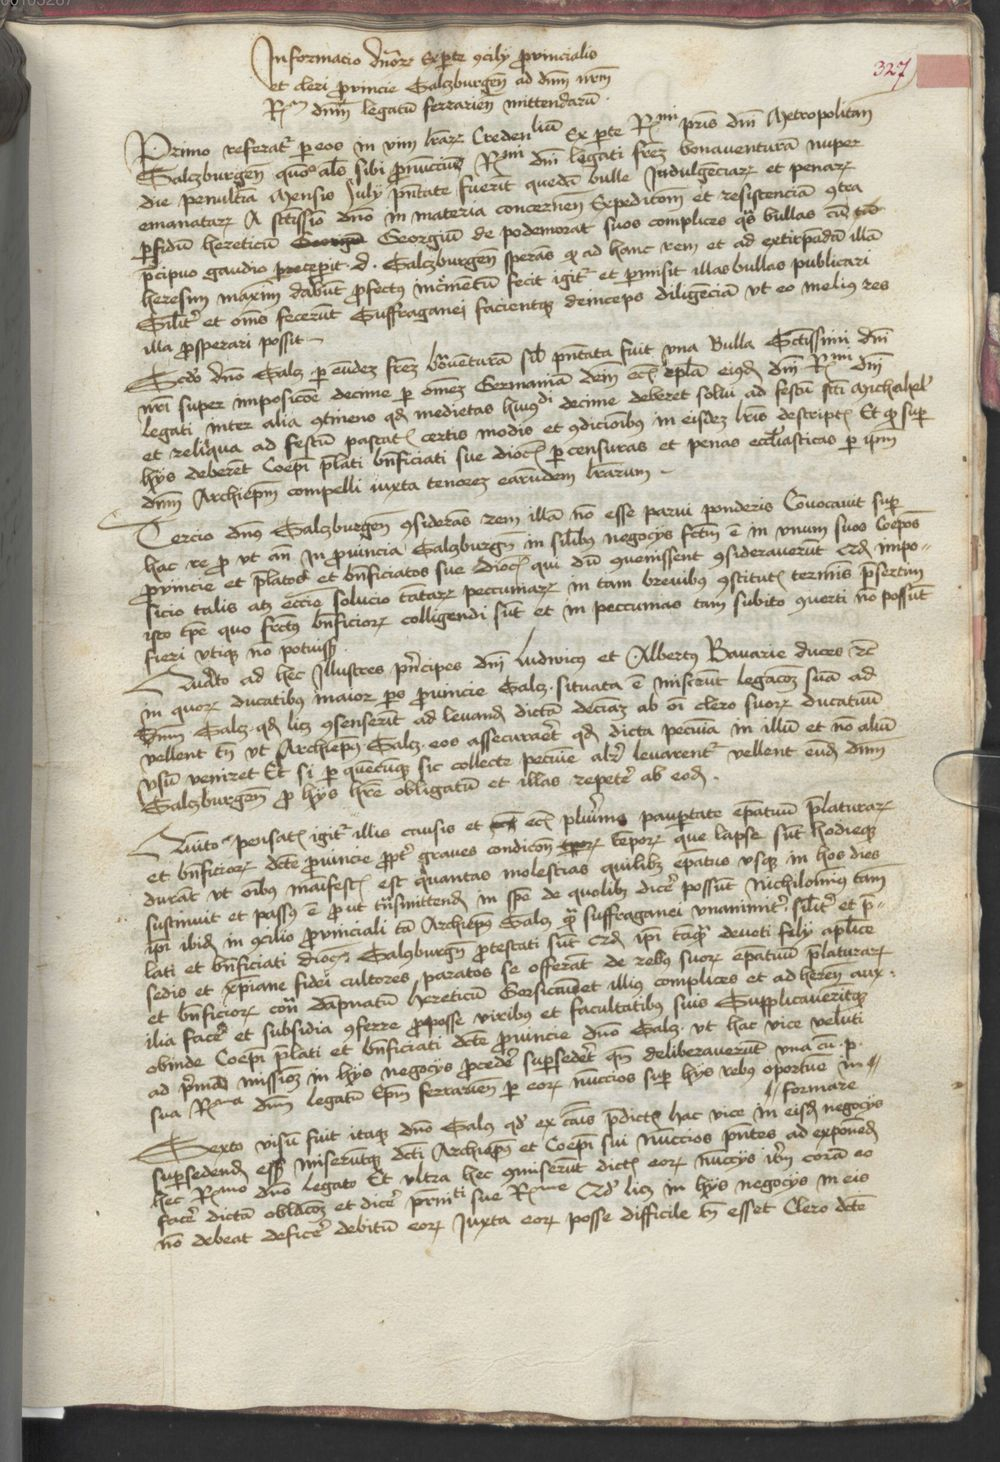 327
Informacio dnor ex parte concilij provincialis
et cleri provincie Salczburgen ad dnm nrm
Rm dnm legatu ferrarien mittendaru
Primo referat per eos in vim lrar Credenlium Ex parte Rmi pris dni Metropolitan
Salczburgen quo als sibi pronuncius Rmi dni legati frez bonaventura nuper
die penultia Mensis July pntate fuerit queda bulle Indulgenciar et penar
emanatar A sctissio dno in materia concernen Expedicom et resistencia contra
perfidu hereticu Georgiu de podemorat suos complices qs bullas cu
precipuo gaudio precepit d. Salczburgen sperans q ad hanc rem et ad extirpada illa
heresim maxim dabut profectu incrementu fecit igit et permisit illas bullas publicari
Silit et oms fecerut Suffraganei facientq deinceps diligencia vt eo melius res
illa prosperari possit
Scdo dno Salcz per eundez frez bonventura sibi pntata fuit vna Bulla Sctissimi dni
nri super imposicoe decime per omez Germania dem ecz epla eiusd dni Rmi dni
legati inter alia contines qd medietas huiusdi decime deberet solui ad festu scti Michahel
et reliqua ad festu pascatz certis modis et condicioibus in eisdez lris descriptz Et q sup
hys deberet Coepi prlati bnficiati sue dioc per censuras et penas ecclasticas per ipm
dnm Archiepm compelli iuxta tenorez earumdem lrarum
Tercio dnus Salczburgen considerans rem illa no esse parui ponderis Conuocauit sup
hac re pro vt an in prouincia Salczburgn in silibus negocys fctm e in vnum suos Coepos
prouincie et prlatos et bnficiatos sue dioc qui du conuenissent considerauerut qd impo-
sicio talis atz eccie solucio tatar peccuniar in tam breuibus constitutz termis presertim
isto tpe quo fructus bnficior colligendi sut et in peccunias tam subito conuerti no possut
fieri vtiqz no potuiss
Quarto ad hec Illustres principes dni ludwicus et Albertus Bauarie duces etc
in quor ducatibus maior ps prouincie Salcz. situata e miserut legacoz sua ad
dnm Salcz. qd licz consenserit ad leuand dicta deciaz ab oi clero suor ducatuu
vellent tn vt Archiepus Salcz. eos assecuraret qd dicta pecuia in illu et no aliu
vsu veniret Et si per quecuqz sic collecte pecuie alr leuarent vellent eud dnm
Salczburgen pro hys hre obligatu et illas repete ab eod.
Quito pensatz igit illis causis et ecz plurims paupertate epatuu prlaturar
et bnficior dcte prouincie propter graues condicon tempor que lapse sut hodieqz
durat vt oibus maifestz est quantas molestias quilibz epatus vsqz in hos dies
sustinuit et passus e pro ut transmittend in spe de quolibz dice possut Nichilominus tam
ipi ibid in concilio prouinciali ta Archiepus Salcz q suffraganei vnanimit. silit et pre-
lati et bnficiati dioc. Salczburgn protestati sut qd ipi taqz deuoti fily aplice
sedis et xpiane fidei cultores paratos se offerat de rebus suor epatuu prlaturar
et bnficior con dapnatu hreticu Gersicu et illius complices et ad heren aux-
ilia face et subsidia conferre pro posse viribus et facultatibus suis Supplicaueritqz
obinde Coepi prlati et bnficiati dcte prouincie dno Salcz. vt hac vice veluti
ad prima missioz in hys negocys procede supersedet qm deliberauerut vna cu p.
sua Rma dnm legatu Epm ferrarien per eor nuccios sup hys rebus oportue in
formare
Sexto visu fuit itaqz dno Salcz qd ex cais predictz hac vice in eisd negocys
supersedend ess miserutqz dcti Archiepus et Coepi sui nuccios pntes ad exponed
hec Rmo dno legato Et vltra hec comiserut dictz eor nuccijs ibm cora eo
face dicta oblacoz et dice prnnti sue Rme Qd licz in hys negocys in eis
no debeat defice debitu eor Juxta eor posse difficile tn esset Clero dcte